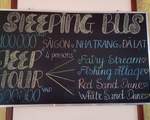 SLEEPING BUS
SAIGON NHA TRANG DA LAT
JEEP TOUR
4 persons
Fairy Stream
Fishing village
Red Sand Dunes
White Sand Dunes
VND